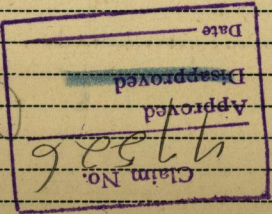 Claim No.
Approved
Disapproved
Date